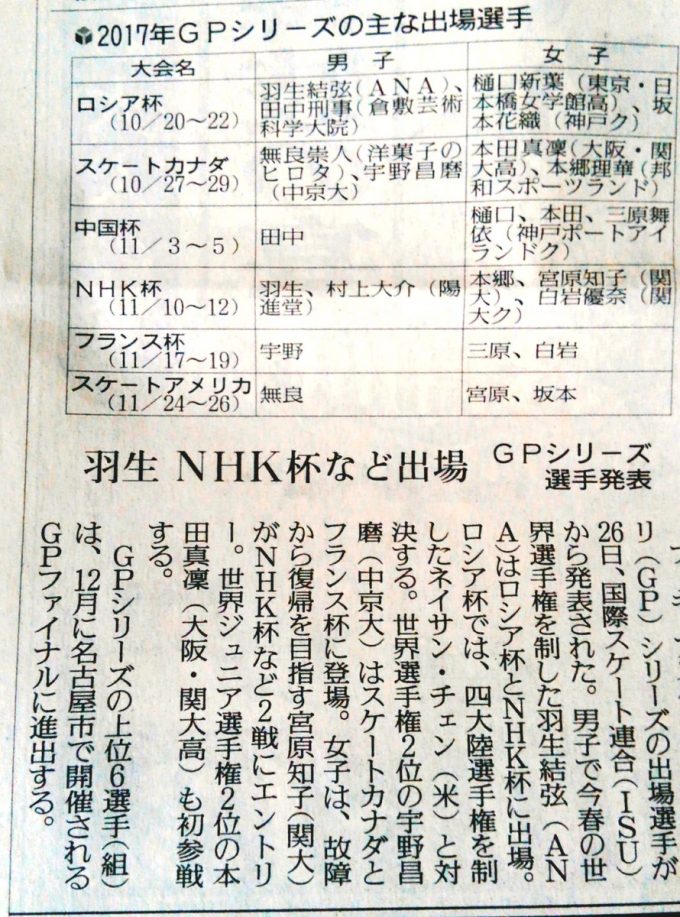 2017年GPシリーズの主な出場選手
大会名 男子 女子
ロシア杯
(10/20〜22)
羽生結弦(ANA)、
田中刑事(倉敷芸術
科学大院)
樋口新葉(東京・日
本橋女学館高)、坂
本花織(神戸ク)
スケートカナダ
(10/27〜29)
無良崇人(洋菓子の
ヒロタ)、宇野昌磨
(中京大)
本田真凜(大阪・関
大高)、本郷理華(邦
和スポーツランド)
中国杯
(11/3〜5)
田中
樋口、本田、三原舞
依(神戸ポートアイ
ランドク)
NHK杯
(11/10〜12)
羽生、村上大介(陽
進堂)
本郷、宮原知子(関
大)、白岩優奈(関
大ク)
フランス杯
(11/17〜19)
宇野
三原、白岩
スケートアメリカ
(11/24〜26)
無良
宮原、坂本
羽生 NHK杯など出場
GPシリーズ
選手発表
リ(GP)シリーズの出場選手が
26日、国際スケート連合(ISU)
から発表された。男子で今春の世
界選手権を制した羽生結弦(AN
A)はロシア杯とNHK杯に出場。
ロシア杯では、四大陸選手権を制
したネイサン・チェン(米)と対
決する。世界選手権2位の宇野昌
磨(中京大)はスケートカナダと
フランス杯に登場。女子は、故障
から復帰を目指す宮原知子(関大)
がNHK杯など2戦にエントリ
ー。世界ジュニア選手権2位の本
田真凜(大阪・関大高)も初参戦
する。
GPシリーズの上位6選手(組)
は、12月に名古屋市で開催される
GPファイナルに進出する。